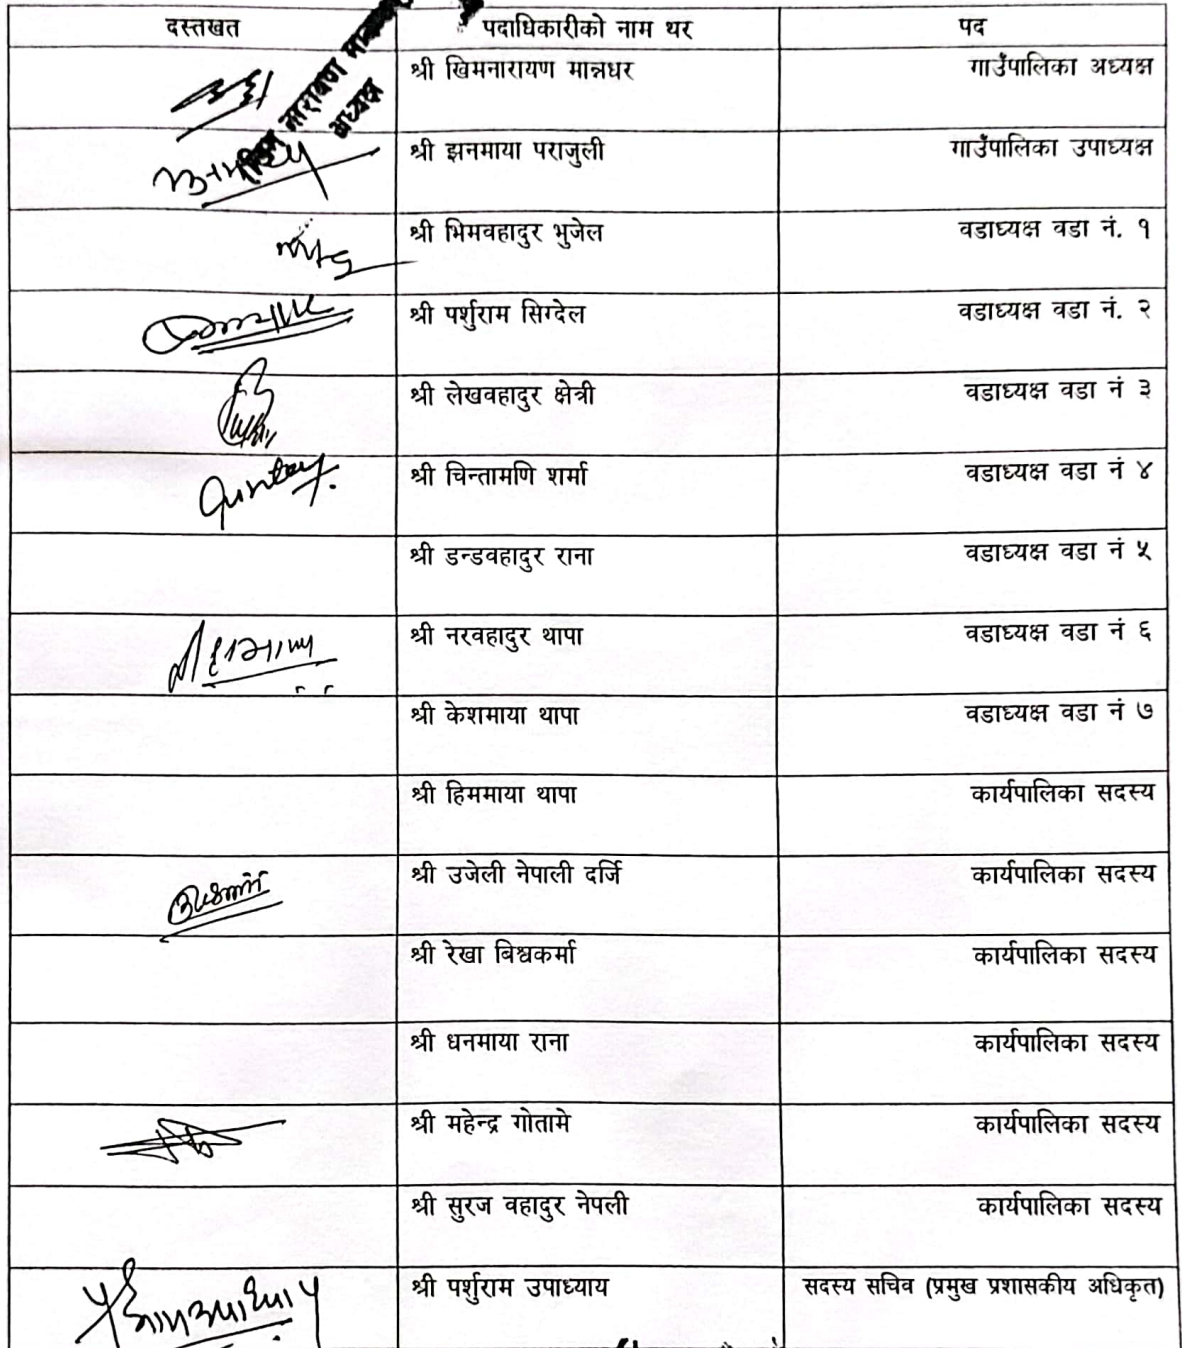 दस्तखत पदाधिकारीको नाम थर पद
श्री खिमनारायण मानन्धर गाउँपालिका अध्यक्ष
नारायण
अध्यक्ष
श्री झनमाया पराजुली गाउँपालिका उपाध्यक्ष
श्री भिमवहादुर भुजेल वडाध्यक्ष वडा नं. १
श्री पर्शुराम सिग्देल वडाध्यक्ष वडा नं. २
श्री लेखवहादुर क्षेत्री वडाध्यक्ष वडा नं ३
श्री चिन्तामणि शर्मा वडाध्यक्ष वडा नं ४
श्री डन्डवहादुर राना वडाध्यक्ष वडा नं ५
श्री नरवहादुर थापा वडाध्यक्ष वडा नं ६
श्री केशमाया थापा वडाध्यक्ष वडा नं ७
श्री हिममाया थापा कार्यपालिका सदस्य
श्री उजेली नेपाली दर्जि कार्यपालिका सदस्य
श्री रेखा बिश्वकर्मा कार्यपालिका सदस्य
श्री धनमाया राना कार्यपालिका सदस्य
श्री महेन्द्र गोतामे कार्यपालिका सदस्य
श्री सुरज वहादुर नेपली कार्यपालिका सदस्य
श्री पर्शुराम उपाध्याय सदस्य सचिव (प्रमुख प्रशासकीय अधिकृत)